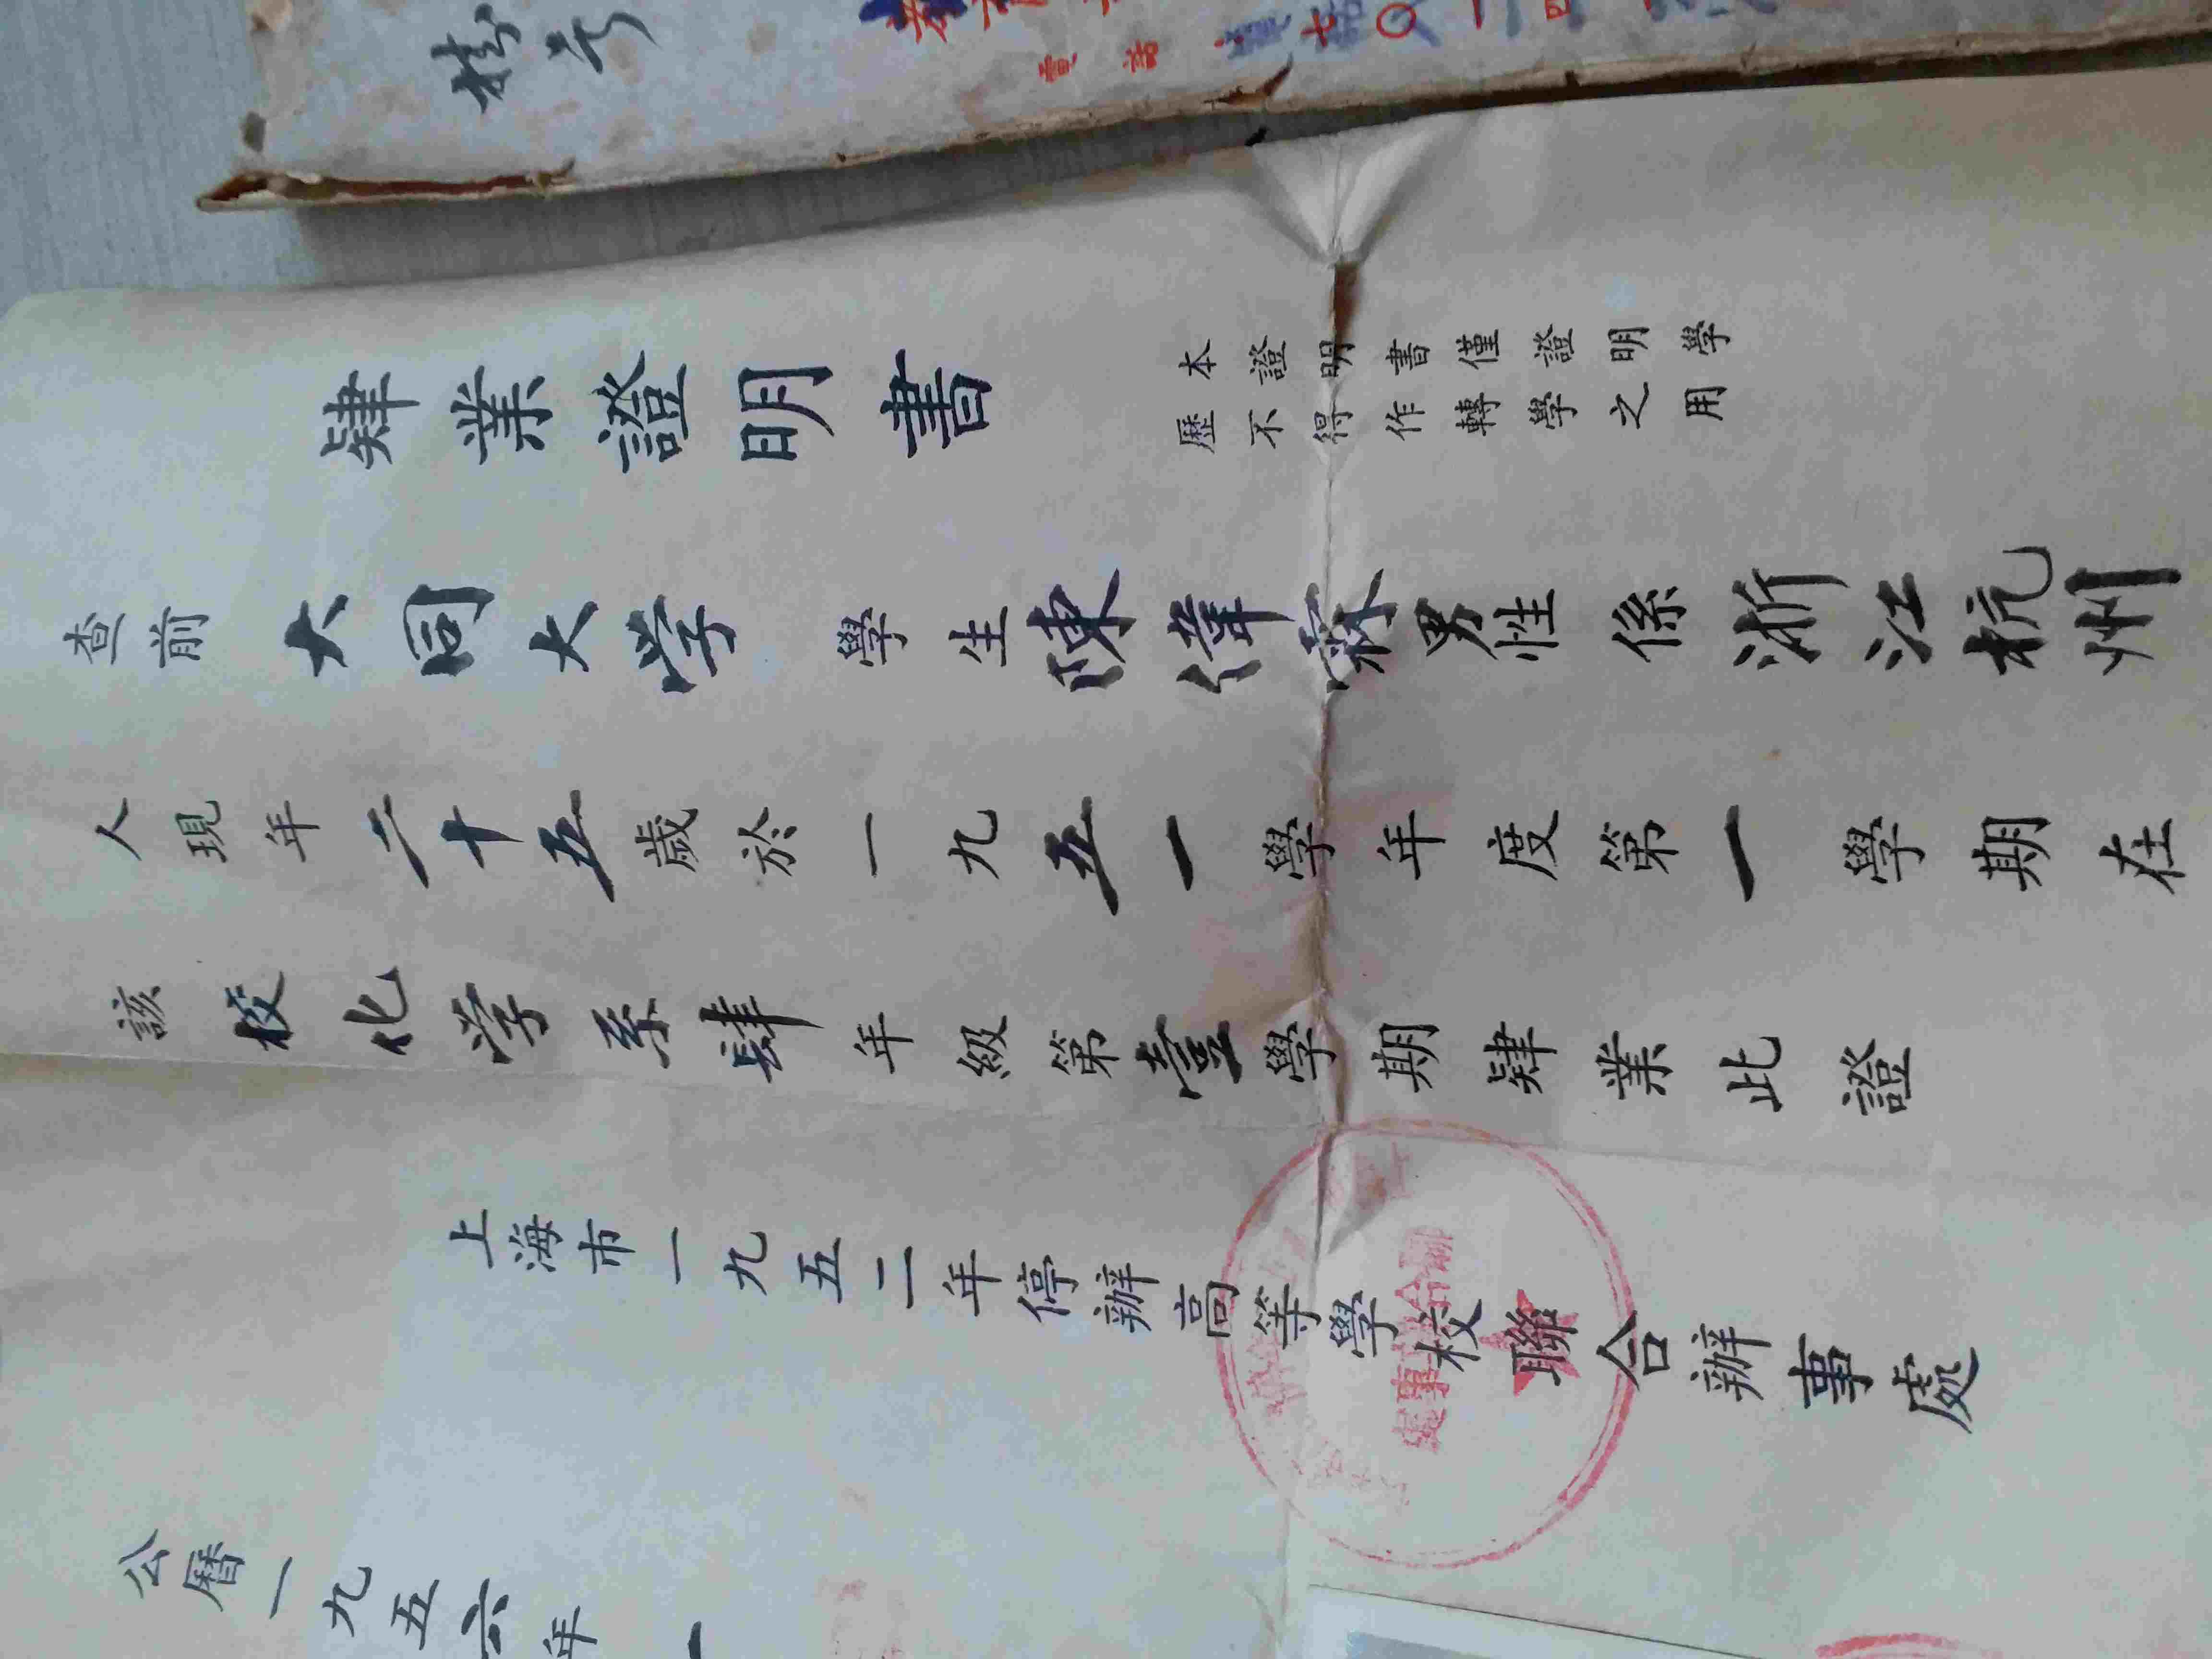 肄業證明書
本證明書僅證明學
歷不得作轉學之用
查前大同大学學生陳偉寀男性係浙江杭州
人現年二十五歲於一九五一學年度第一學期在
該校化学系肆年級第壹學期肄業此證
上海市一九五二年停辦高等學校聯合辦事處
公曆一九五六年一